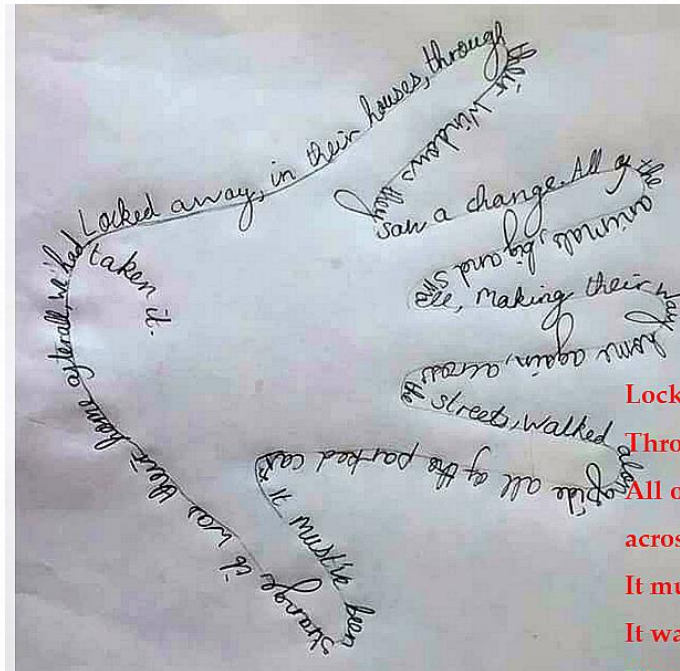 Locked away, in their houses, through
their windows they
saw a change. All of the
animals, big and small,
making their way
home again, across
the streets, walked alongside
all of the parked cars
It must've been
strange, it was their home afterall, we'd
taken it.
Lock
Thro
All o
acros
It mu
It wa